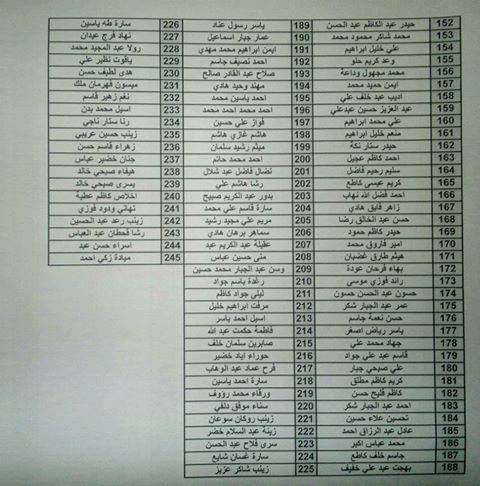 152 حيدر عبد الكاظم عبد الحسن
153 محمد شاكر محمود محمد
154 علي خليل ابراهيم
155 وعد كريم حلو
156 محمد مجهول وداعة
157 ايمن حميد محمد
158 اديب عبد خلف علي
159 عبد العزيز حسين عبدعلي
160 علي محمد ابراهيم
161 منعم خليل ابراهيم
162 حيدر ستار نكة
163 احمد كاظم عجيل
164 سليم رحيم فاضل
165 كريم عيسى كاطع
166 احمد فضل الله نهاب
167 زاهر فايق هادي
168 حسن عبد الخالق رضا
169 حيدر كاظم حمود
170 امير فاروق محمد
171 هيثم طارق غضبان
172 بهاء فرحان عودة
173 رائد فوزي موسى
174 حسون عبد الحسن حسون
175 عمر عبد الجبار شكر
176 حسن نعمة جاسم
177 ياسر رياض اصغر
178 جهاد محمد علي
179 قاسم عبد علي جواد
180 علي صبحي جبار
181 كريم كاظم مطلق
182 كاظم فليح حسن
183 احمد عبد الجبار شكر
184 تحسين علاء حسين
185 عادل عبد الرزاق احمد
186 محمد عباس اكبر
187 جاسم خلف كاطع
188 بهجت عبد علي خفيف
189 ياسر رسول عناد
190 عمار جبار اسماعيل
191 ايمن ابراهيم محمد مهدي
192 احمد نصيف جاسم
193 صلاح عبد القادر صالح
194 مهند وحيد هادي
195 احمد ياسين محمد
196 احمد محمد احمد محمد
197 فواز علي حسين
198 هاشم غازي هاشم
199 ميثم رشيد سلمان
200 احمد محمد حاتم
201 نضال فاضل عبد شلال
202 رشا هاشم علي
203 بدور عبد الكريم صبيح
204 سارة قاسم علي محمد
205 مريم علي مجيد رشيد
206 سماهر برهان هادي
207 عقيلة عبد الكريم عبد
208 منى حسين عباس
209 وسن عبد الجبار محمد حسين
210 رغدة باسم جواد
211 ليلى جواد كاظم
212 مرفت ابراهيم خليل
213 اسيل احمد ياسر
214 فاطمة حكمت عبد الله
215 صابرين سلمان خلف
216 حوراء اياد خضير
217 فرح عماد عبد الوهاب
218 سارة احمد ياسين
219 ورقاء محمد رؤوف
220 سناء موفق دلفي
221 زينب روكان سوعان
222 زينة عبد السلام خضر
223 سرى فلاح عبد الحسن
224 سارة غسان شايع
225 زينب شاكر عزيز
226 سارة طه ياسين
227 نهاد فرج عيدان
228 رولا عبد المجيد محمد
229 ياقوت نظير علي
230 هدى لطيف حسن
231 ميسون قهرمان ملك
232 نغم زهير قاسم
233 اسيل محمد بدن
234 رنا ستار ناجي
235 زينب حسين عريبي
236 زهراء قاسم حسن
237 جنان خضير عباس
238 هيفاء صبحي خالد
239 يسرى صبحي خالد
240 اخلاص كاظم عطية
241 تهاني ودود فوزي
242 زينب رعد عبد الحسين
243 رشا قحطان عبد العباس
244 اسراء حسن عبد
245 ميادة زكي احمد